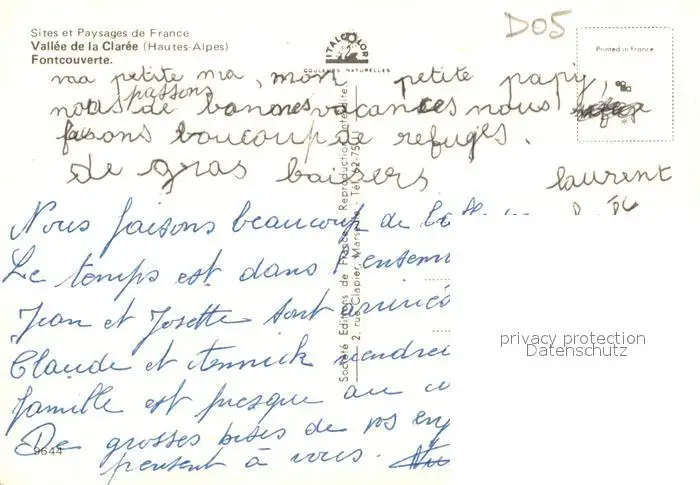 D05
Sites et Paysages de France
Vallée de la Clarée (Hautes-Alpes)
Fontcouverte.
ITALCOLOR
COULEURS NATURELLES
Printed in France
ma petite ma, mon petite papy,
passons
nous de bonnes vacances nous
fasons boucoup de refuges.
de gras baisers laurent
Nous faisons beaucoup de
Le temps est dans l'ensem
Jean et Josette sont arrivés
Claude et Annick viendrei
famille est presque au
De grosses bises de vos
pensent à vous.
9644
Société Editions de France - Reproduction interdite
2, rue Clapier, Marseille - Tél. 62-75
privacy protection
Datenschutz